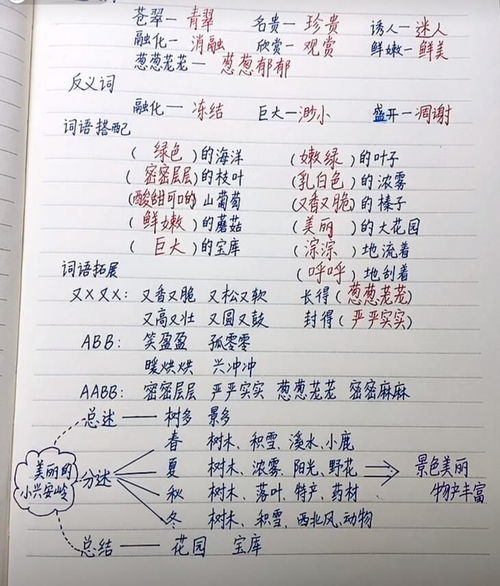 苍翠一青翠 名贵一珍贵 诱人一迷人
融化一消融 欣赏一观赏 鲜嫩一鲜美
葱葱茏茏一葱葱郁郁
反义词
融化一冻结 巨大一渺小 盛开一凋谢
词语搭配
(绿色)的海洋 (嫩绿)的叶子
(密密层层)的枝叶 (乳白色)的浓雾
(酸甜可口的)山葡萄 (又香又脆)的榛子
(鲜嫩)的蘑菇 (美丽)的大花园
(巨大)的宝库 (淙淙)地流着
(呼呼)地刮着
词语拓展
又X又X: 又香又脆 又松又软 长得(葱葱茏茏)
又高又壮 又圆又鼓 封得(严严实实)
ABB: 笑盈盈 孤零零
暖烘烘 兴冲冲
AABB: 密密层层 严严实实 葱葱茏茏 密密麻麻
总述——树多 景多
美丽的
小兴安岭
分述
春 树木、积雪、溪水、小鹿
夏 树木、浓雾、阳光、野花
秋 树木、落叶、特产、药材
冬 树木、积雪、西北风、动物
景色美丽
物产丰富
总结——花园 宝库